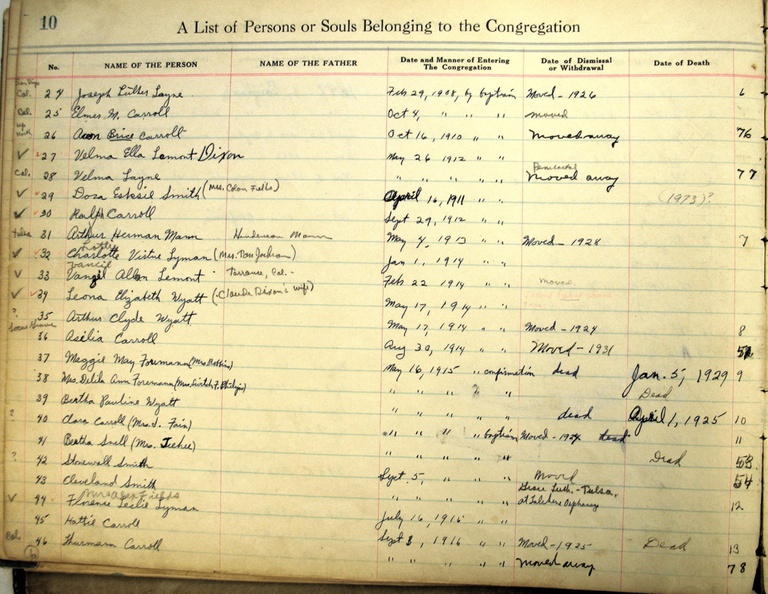 10
A List of Persons or Souls Belonging to the Congregation
No. NAME OF THE PERSON NAME OF THE FATHER Date and Manner of Entering The Congregation Date of Dismissal or Withdrawal Date of Death
Cal. 24 Joseph Luther Layne Feb 29, 1908, by baptism Moved - 1926 6
Cal. 25 Elmer M. Carroll Oct 4, " " " moved
26 Brice Carroll Oct 16, 1910 " " Moved away 76
✓ 27 Velma Ella Lemont Dixon May 26 1912 " "
Cal. 28 Velma Layne " " " " " Moved away 77
✓ 29 Dosa Smith (Mrs. Fields) April 16, 1911 (1973)?
✓ 30 Ralph Carroll Sept 29, 1912 " "
Tulsa 31 Arthur Herman Mann Mann May 4, 1913 " " Moved - 1928 7
✓ 32 Charlotte Virtue Lyman (Mrs. Tom Jackson) Jan 1, 1914 " "
✓ 33 Allen Lemont Torrance, Cal. Feb 22 1914 " moved
✓ 34 Leona Elizabeth Wyatt (Claude Dixon's wife) May 17, 1914 " "
? 35 Arthur Clyde Wyatt May 17, 1914 " " Moved - 1924 8
36 Carroll Aug 30, 1914 " " Moved - 1931 52
37 Meggie May Foremann May 16, 1915 " confirmation dead Jan. 5, 1929 9
38 Mrs. Delila Ann Foremann " " " " " Dead
39 Bertha Pauline Wyatt " " " " " dead April 1, 1925 10
? 40 Clara Carroll (Mrs. J. Fain) " " " " baptism Moved - 1924 dead 11
41 Bertha Snell (Mrs. ) " " " " " Dead 53
? 42 Stonewall Smith Sept 5, " " " Moved 54
43 Cleveland Smith " " " " " Grace Luth. - Tulsa, at Orphanage 12
Mrs Alex Fields
✓ 44 Florence Leslie Lyman
45 Hattie Carroll July 16, 1916 " "
Cal. 46 Thurmann Carroll Sept 3, 1916 " " Moved - 1925 Dead 13
" " " " " Moved away 78